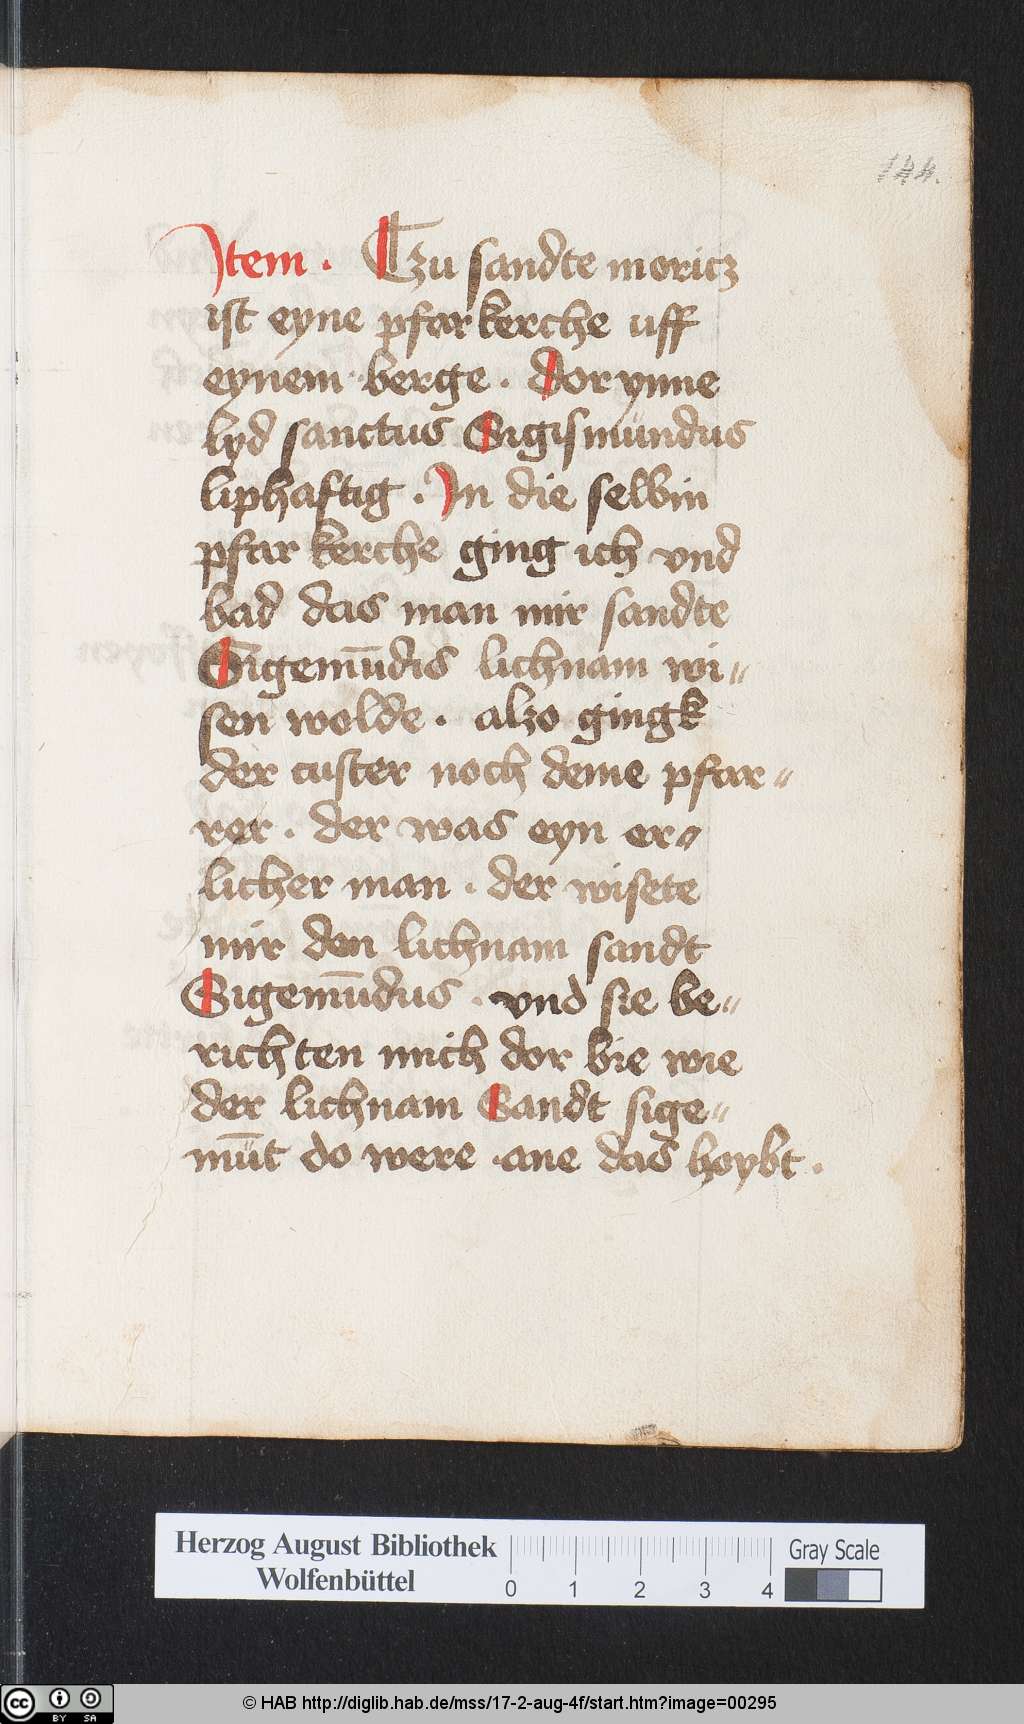 144.
Item . Czu sandte moricz
ist eyne pfar kerche uff
eynem berge . dor ynne
lyd sanctus Sigismundus
liphaftig . In die selbin
pfar kerche ging ich vnd
bad das man mir sandte
Sigemu̅dis lichnam wi〃
sen wolde . alzo gingk
der custer noch deme pfar〃
rer . der was eyn er〃
licher man . der wisete
mir den lichnam sandt
Sigemu̅dus . vnd sie be〃
richten mich dor bie wie
der lichnam Sandt sige〃
mu̅t do were ane das hoybt .
Herzog August Bibliothek
Wolfenbüttel
0 1 2 3 4
Gray Scale
cc BY SA
© HAB http://diglib.hab.de/mss/17-2-aug-4f/start.htm?image=00295